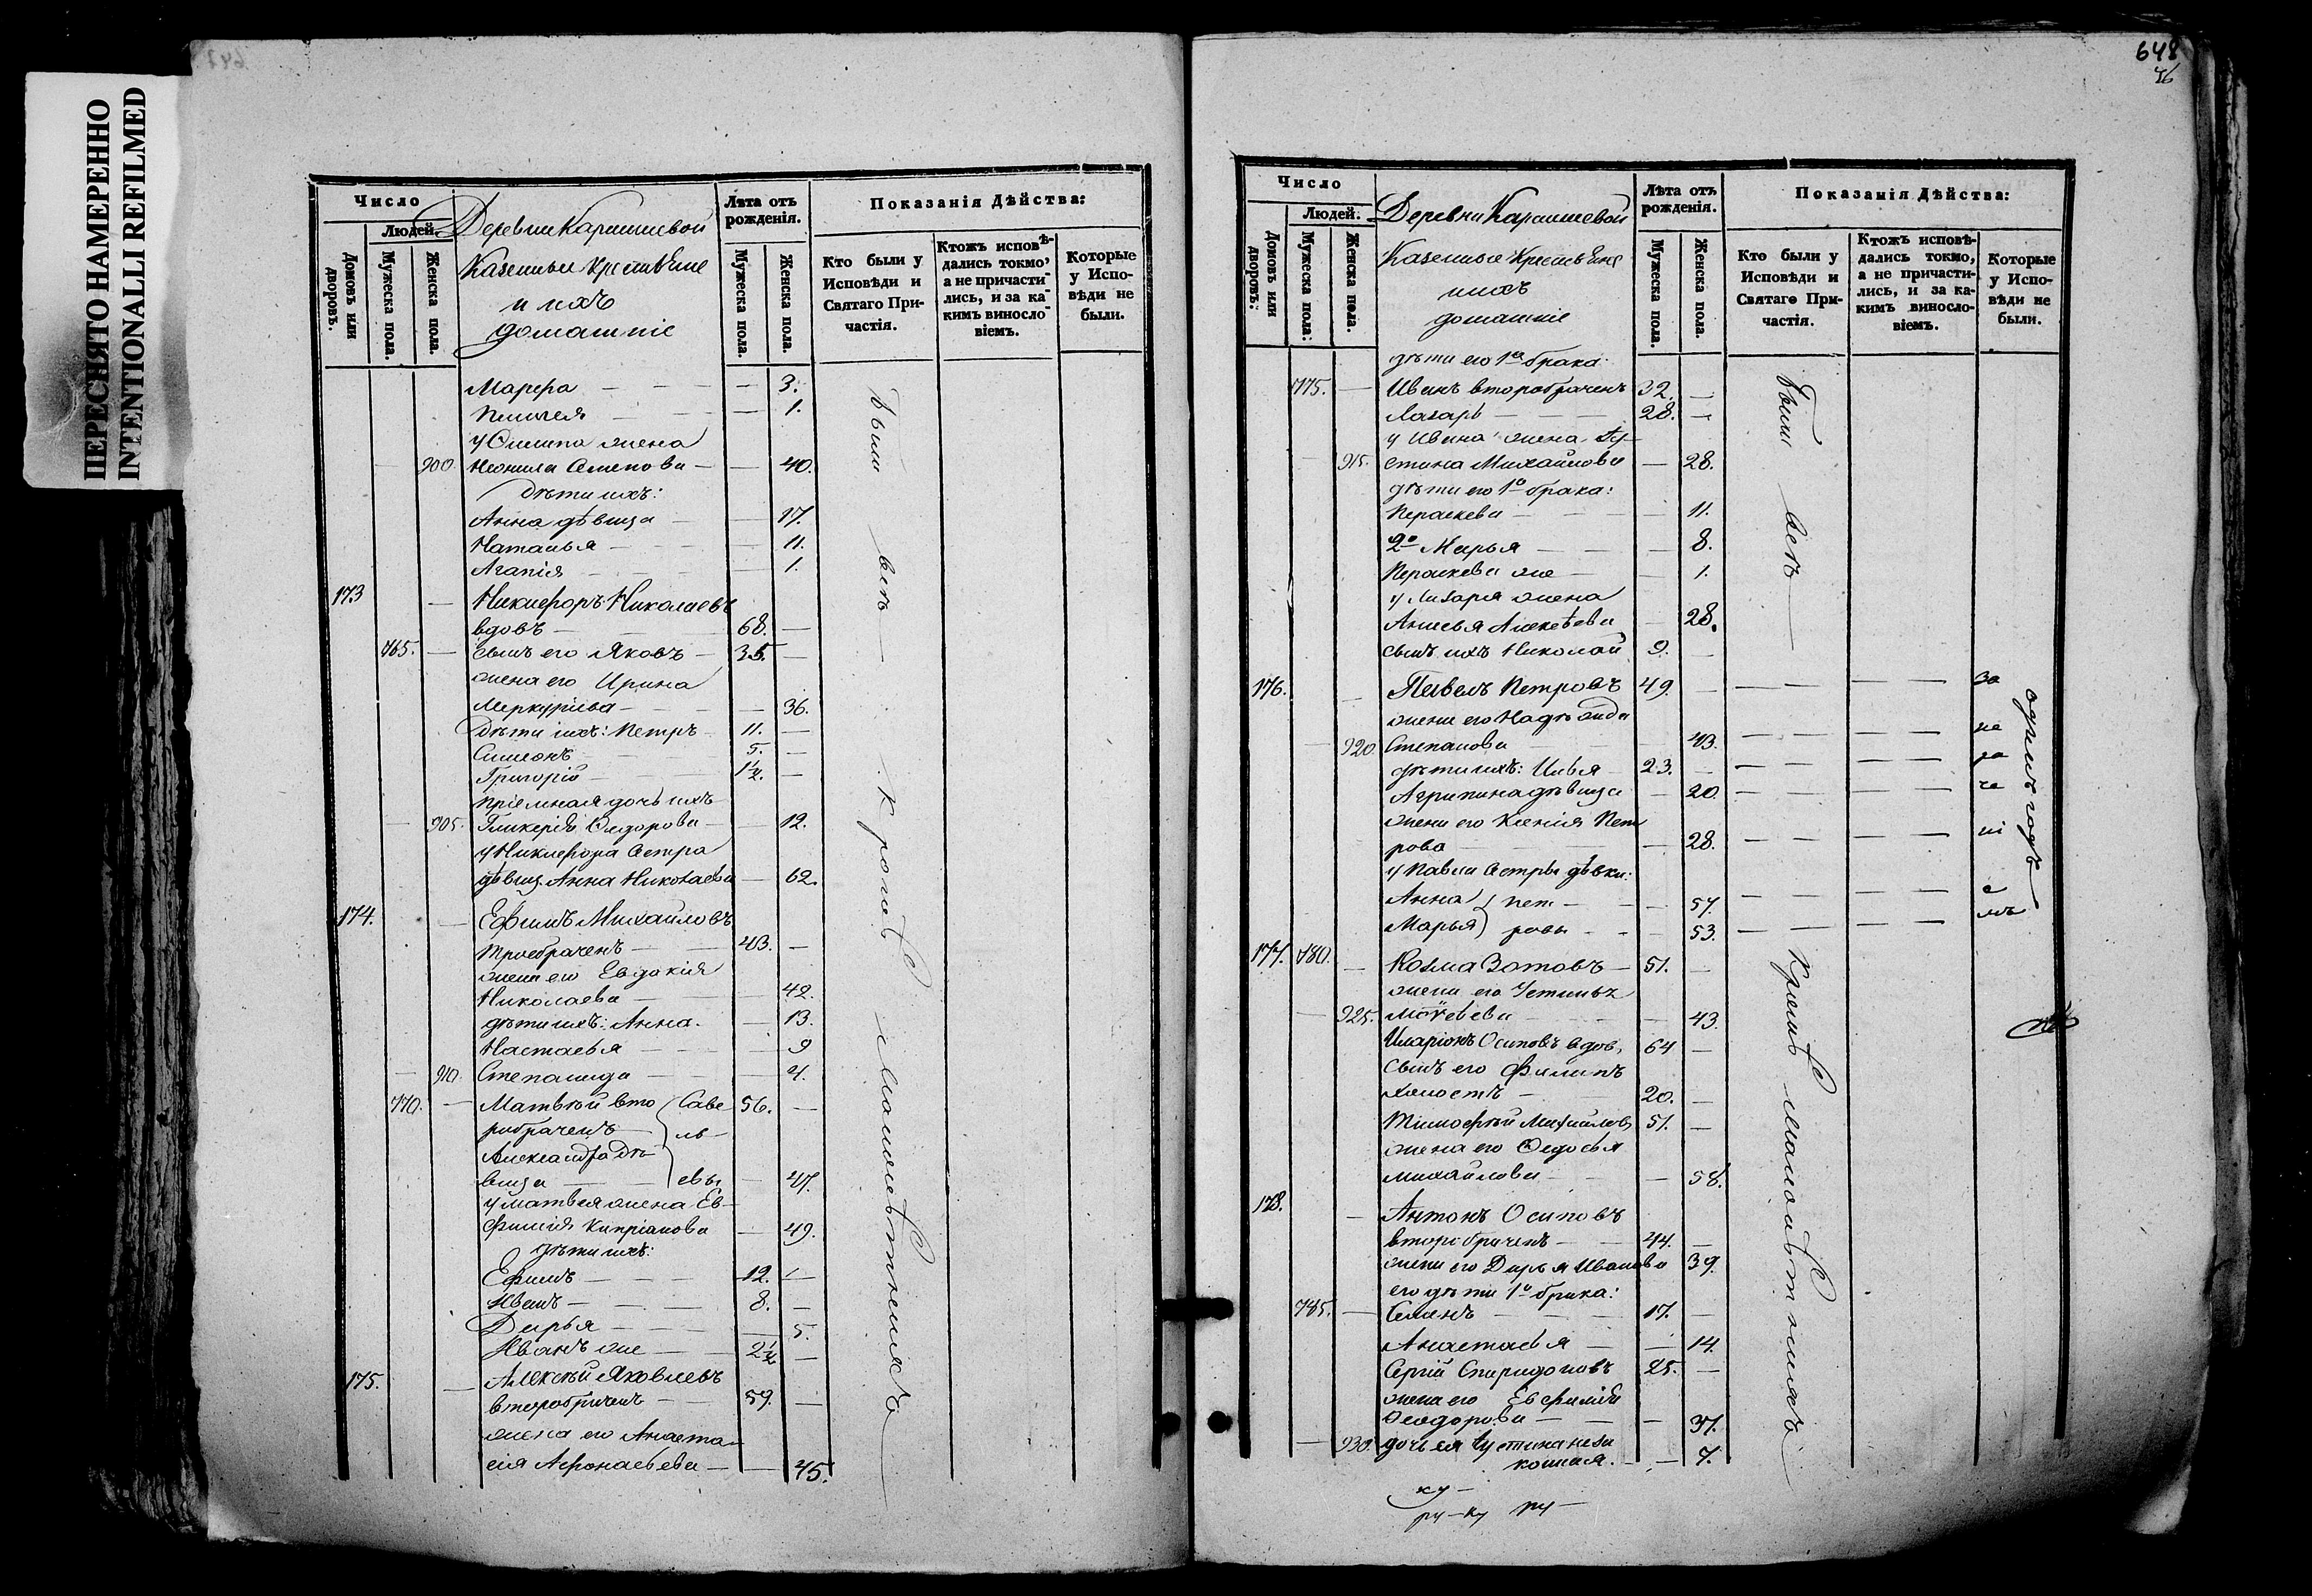 ПЕРЕСНЯТО НАМЕРЕННО
INTENTIONALLI REFILMED
Число
Людей.
Домовъ или дворовъ.
Мужеска пола.
Женска пола.
Деревни Карашевой
Казенные крестьяне
и ихъ
домашніе
Лѣта отъ рожденія.
Мужеска пола.
Женска пола.
Показанія Дѣйства:
Кто были у Исповѣди и Святаго Причастія.
Ктожъ исповѣдались токмо, а не причастились, и за какимъ винословіемъ.
Которые у Исповѣди не были.
Марѳа — — — 3.
Пелагея — — 1.
у Филипа жена
900. Неонила Семенова — — 40.
дѣти ихъ:
Анна дѣвица — — 17.
Наталья — — 11.
Агапія — — 1.
173 — Никифоръ Николаевъ
вдовъ — 68. —
765. — сынъ его Яковъ — 35. —
жена его Ирина
Меркурьева — — 36.
дѣти ихъ: Петръ 11. —
Симеонъ 5. —
Григорій — 1½. —
пріемная дочь ихъ
905. Гликерія Ѳедорова — — 12.
у Никифора сестра
дѣвиц. Анна Николаева — 62.
174. — Ефимъ Михайловъ
троебраченъ — 43. —
жена его Евдокія
Николаева — — 42.
дѣти ихъ: Анна. — 13.
Настасья — — 9
910. Степанида — — 4.
770. — Матвѣй вто Саве 56. —
робраченъ ль
Александра дѣ
вица — евы — 47.
у Матвея жена Ев-
фимия Кипріанова — 49.
дѣти ихъ:
Ефимъ — — 12. —
Иванъ — — 8. —
Дарья — — 5.
Иванъ же — 2½ —
175. — Алексѣй Яковлевъ
второбраченъ — 59. —
жена его Анаста-
сія Афонасьева — — 45.
были всѣ — кромѣ малолѣтнихъ
648
46
Число
Людей.
Домовъ или дворовъ:
Мужеска пола:
Женска пола.
Деревни Карашевой
Казенные крестьяне
ихъ
домашніе
Лѣта отъ рожденія.
Мужеска пола.
Женска пола.
Показанія Дѣйства:
Кто были у Исповѣди и Святаго Причастія.
Ктожъ исповѣдались токмо, а не причастились, и за какимъ винословіемъ.
Которые у Исповѣди не были.
дѣти его 1го брака:
775. — Иванъ второбраченъ 32. —
Лазарь — — 28. —
у Ивана жена Ау-
915. стина Михайлова — 28.
дѣти его 1о брака:
Параскева — — 11.
2о Марья — — 8.
Параскева же — 1.
у Лазаря жена
Анисья Алексѣева — 28.
сынъ ихъ Николай 9. —
176. — Павелъ Петровъ 49. — за
жена его Надежда
920. Степанова 43. — не
дѣти ихъ: Илья 23. —
Агрипина дѣвица — 20. —
жена его Ксенія Пет
рова — 28. —
у Павла сестры дѣвки:
Анна пет — — 57. —
Марья ровы — — 53. —
одинъ годъ
177. 780. — Козма Зотовъ — 51. —
жена его Устинья
925. Моѵсеева 43.
Иларіонъ Осиповъ вдов. 64 —
сынъ его Филипъ
холостъ — 20. —
Тимофѣй Михайловъ 51. —
жена его Ѳедосья
Михайлова — — 58.
178. — Антонъ Осиповъ
второбраченъ — 44. —
жена его Дарья Иванова 39.
его дѣти 1о брака:
785. — Семенъ 17. —
Анастасья — — 14.
Сергій Спиридоновъ 25. —
жена его Евфимія
Ѳеодорова — — 37.
930. дочь ея Иустина неза
конная. — — 7.
были всѣ — кромѣ малолѣтнихъ